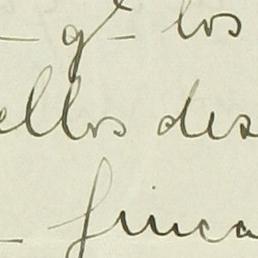 - qᵉ - los
ellos des
- finca